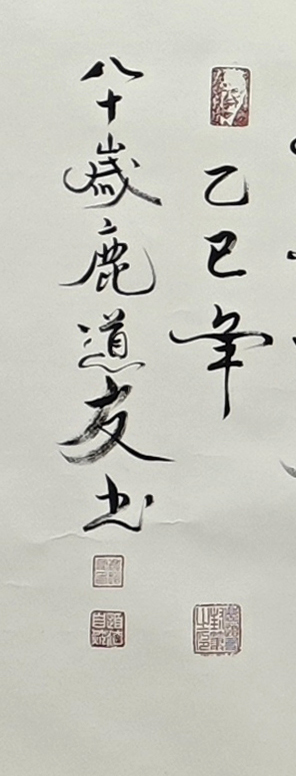 乙巳年
八十歲鹿道友书